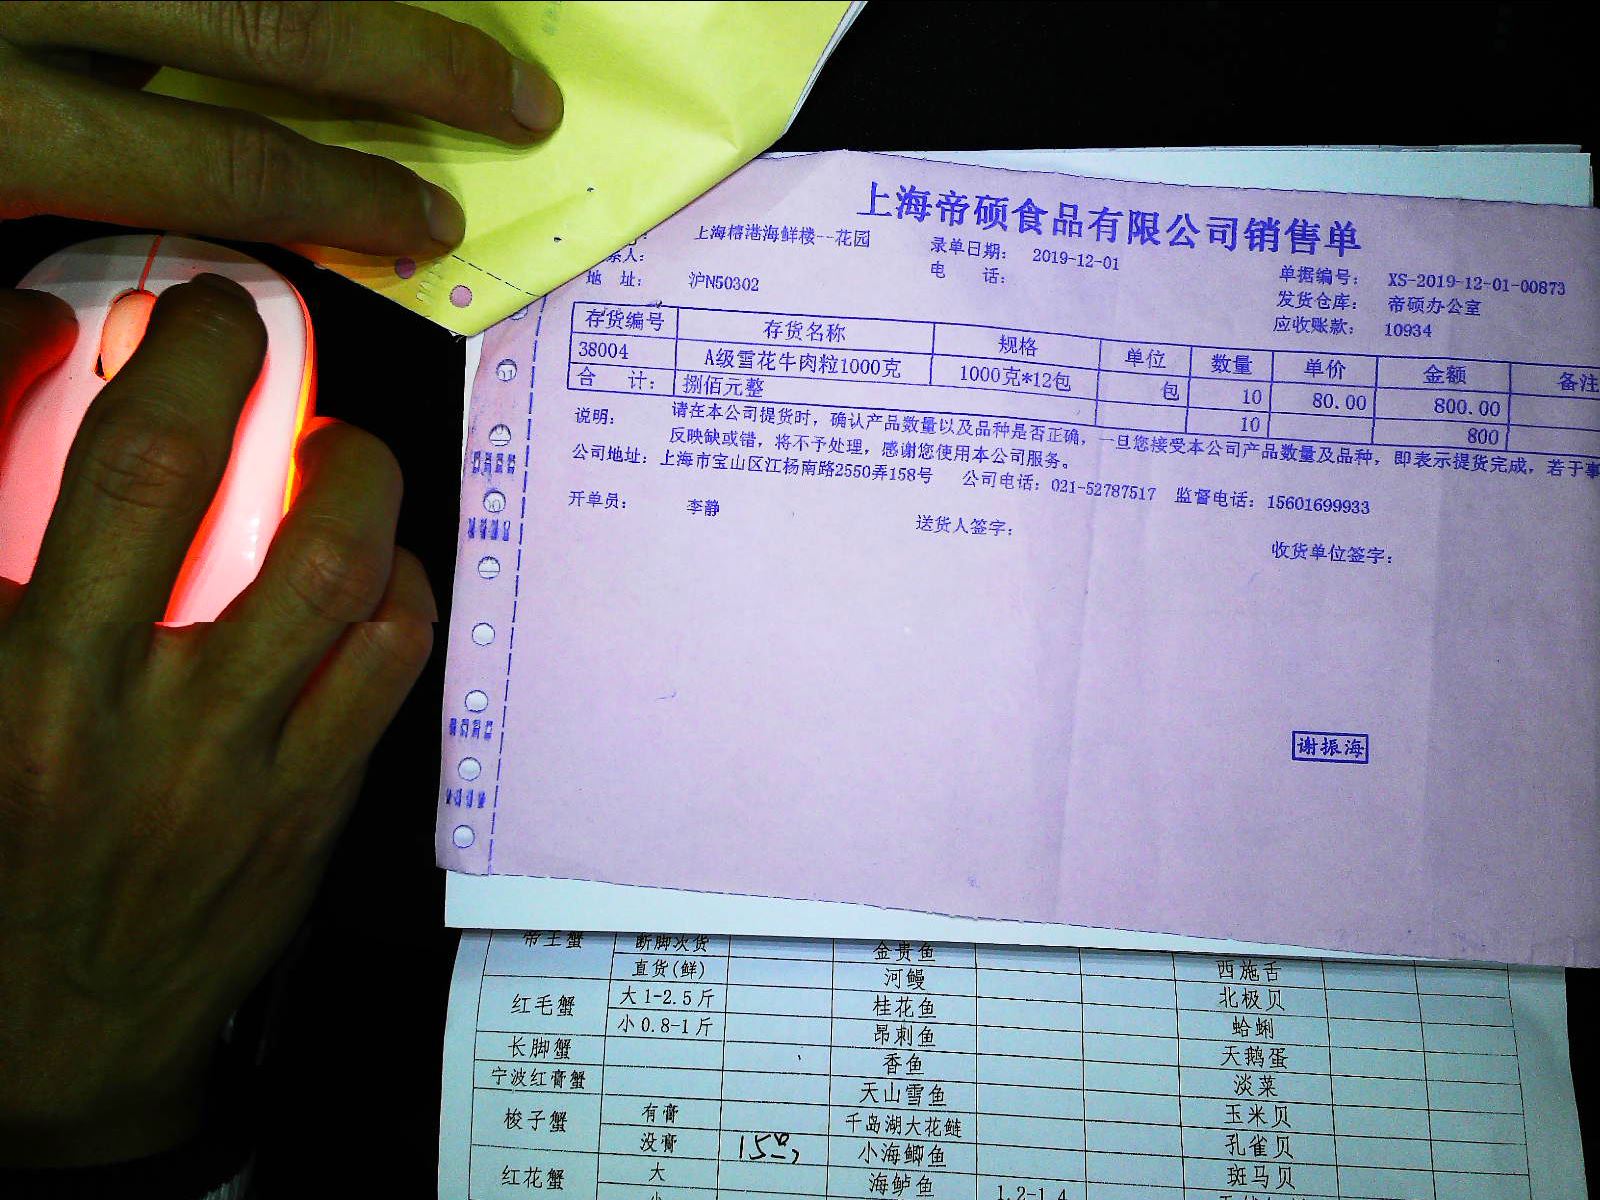 上海帝硕食品有限公司销售单
上海榕港海鲜楼--花园
录单日期: 2019-12-01
单据编号: XS-2019-12-01-00873
系人:
电 话:
发货仓库: 帝硕办公室
地 址: 沪N50302
应收账款: 10934
存货编号 存货名称 规格 单位 数量 单价 金额 备注
38004 A级雪花牛肉粒1000克 1000克*12包 包 10 80.00 800.00
合 计: 捌佰元整 10 800
说明: 请在本公司提货时，确认产品数量以及品种是否正确，一旦您接受本公司产品数量及品种，即表示提货完成，若于事
反映缺或错，将不予处理，感谢您使用本公司服务。
公司地址: 上海市宝山区江杨南路2550弄158号 公司电话: 021-52787517 监督电话: 15601699933
开单员: 李静 送货人签字: 收货单位签字:
谢振海
帝王蟹 断脚次货 金贵鱼
直货(鲜) 河鳗 西施舌
红毛蟹 大1-2.5斤 桂花鱼 北极贝
小0.8-1斤 昂刺鱼 蛤蜊
长脚蟹 香鱼 天鹅蛋
宁波红膏蟹 天山雪鱼 淡菜
梭子蟹 有膏 千岛湖大花鲢 玉米贝
没膏 小海鲫鱼 孔雀贝
红花蟹 大 海鲈鱼 1.2-1.4 斑马贝
小